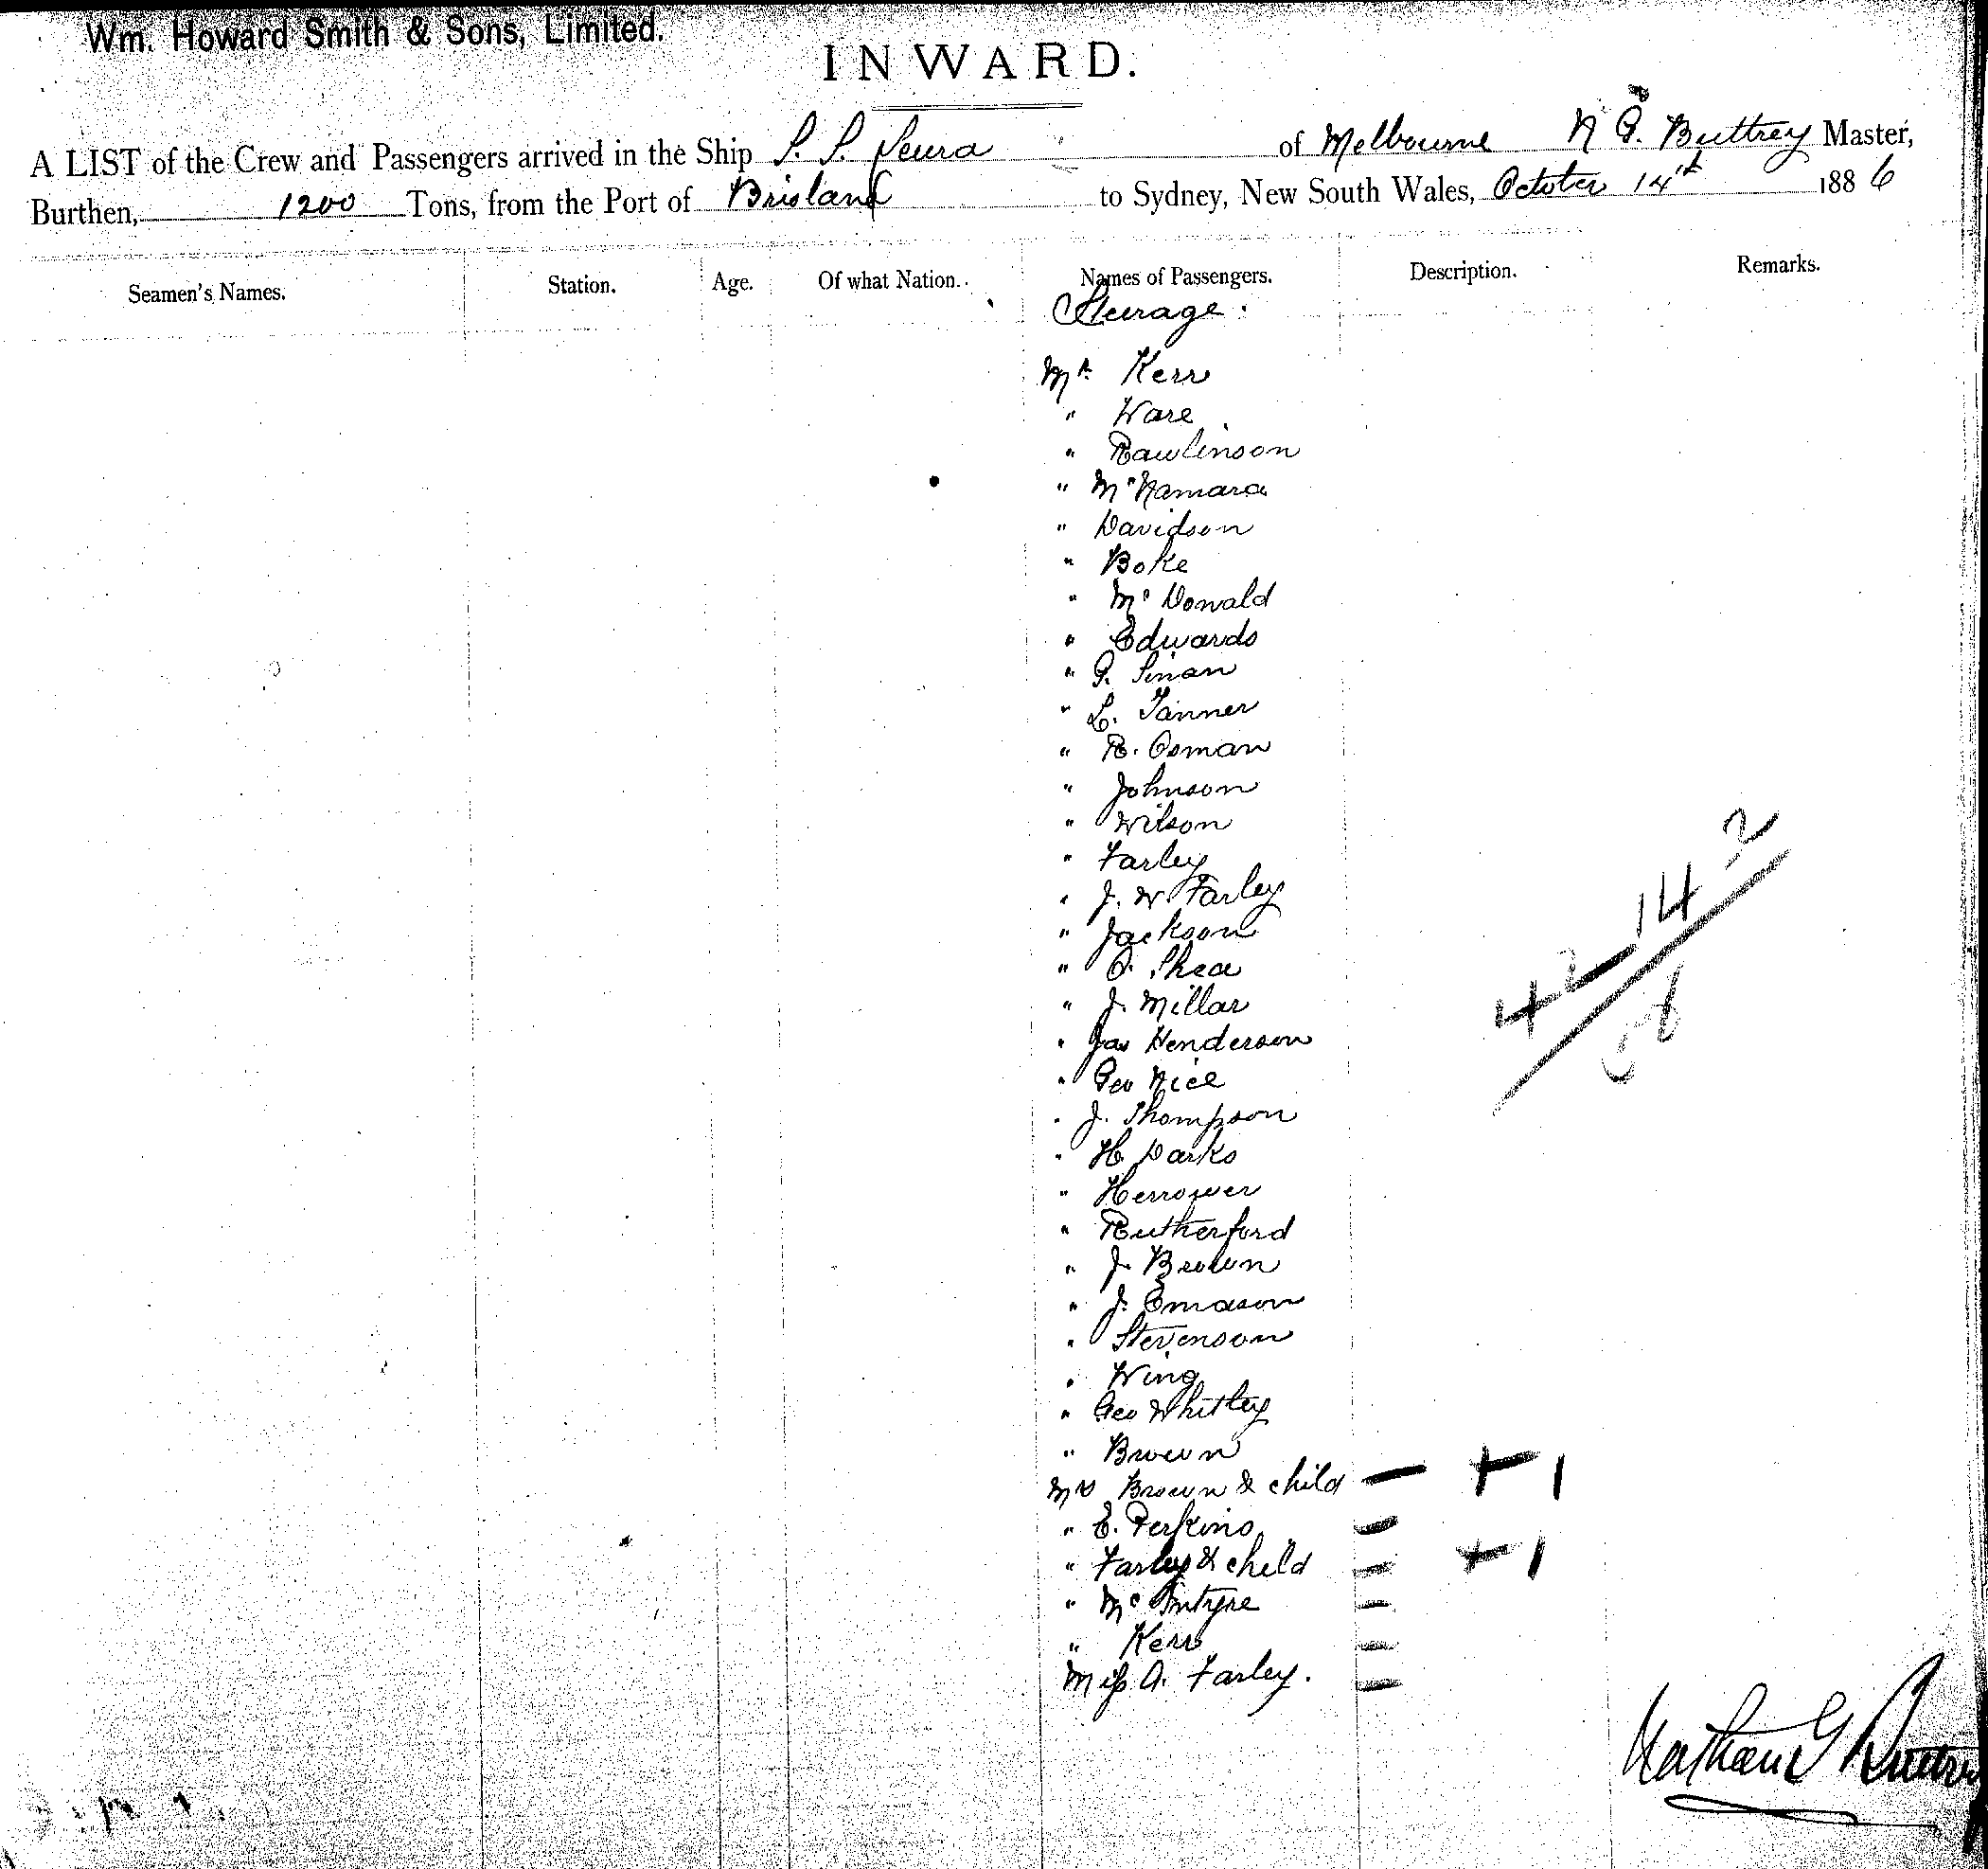 Wm. Howard Smith & Sons, Limited.
INWARD.
A LIST of the Crew and Passengers arrived in the Ship S. S. Leura of Melbourne N G. Buttrey Master,
Burthen, 1200 Tons, from the Port of Brisbane to Sydney, New South Wales, October 14th 1886
Seamen's Names. Station. Age. Of what Nation. Names of Passengers. Description. Remarks.
Steerage.
Mr Kerr
" Ware
" Rawlinson
" McNamara
" Davidson
" Boke
" Mc Donald
" Edwards
" G. Sinan
" L. Tanner
" R. Osman
" Johnson
" Wilson
" Farley
" J. W Farley
" Jackson
" O. Shea
" J. Millar
" Jas Henderson
" Geo Nice
" J. Thompson
" H Darks
" Herrower
" Rutherford
" J. Brown
" J. Emason
" Stevenson
" Wing
" Geo Whitley
" Brown
Mrs Brown & child — + 1
" E. Perkins —
" Farley & child — + 1
" Mc Intyre —
" Kerr —
Miss A. Farley. —
42 — 14 2
Nathaniel G Buttrey